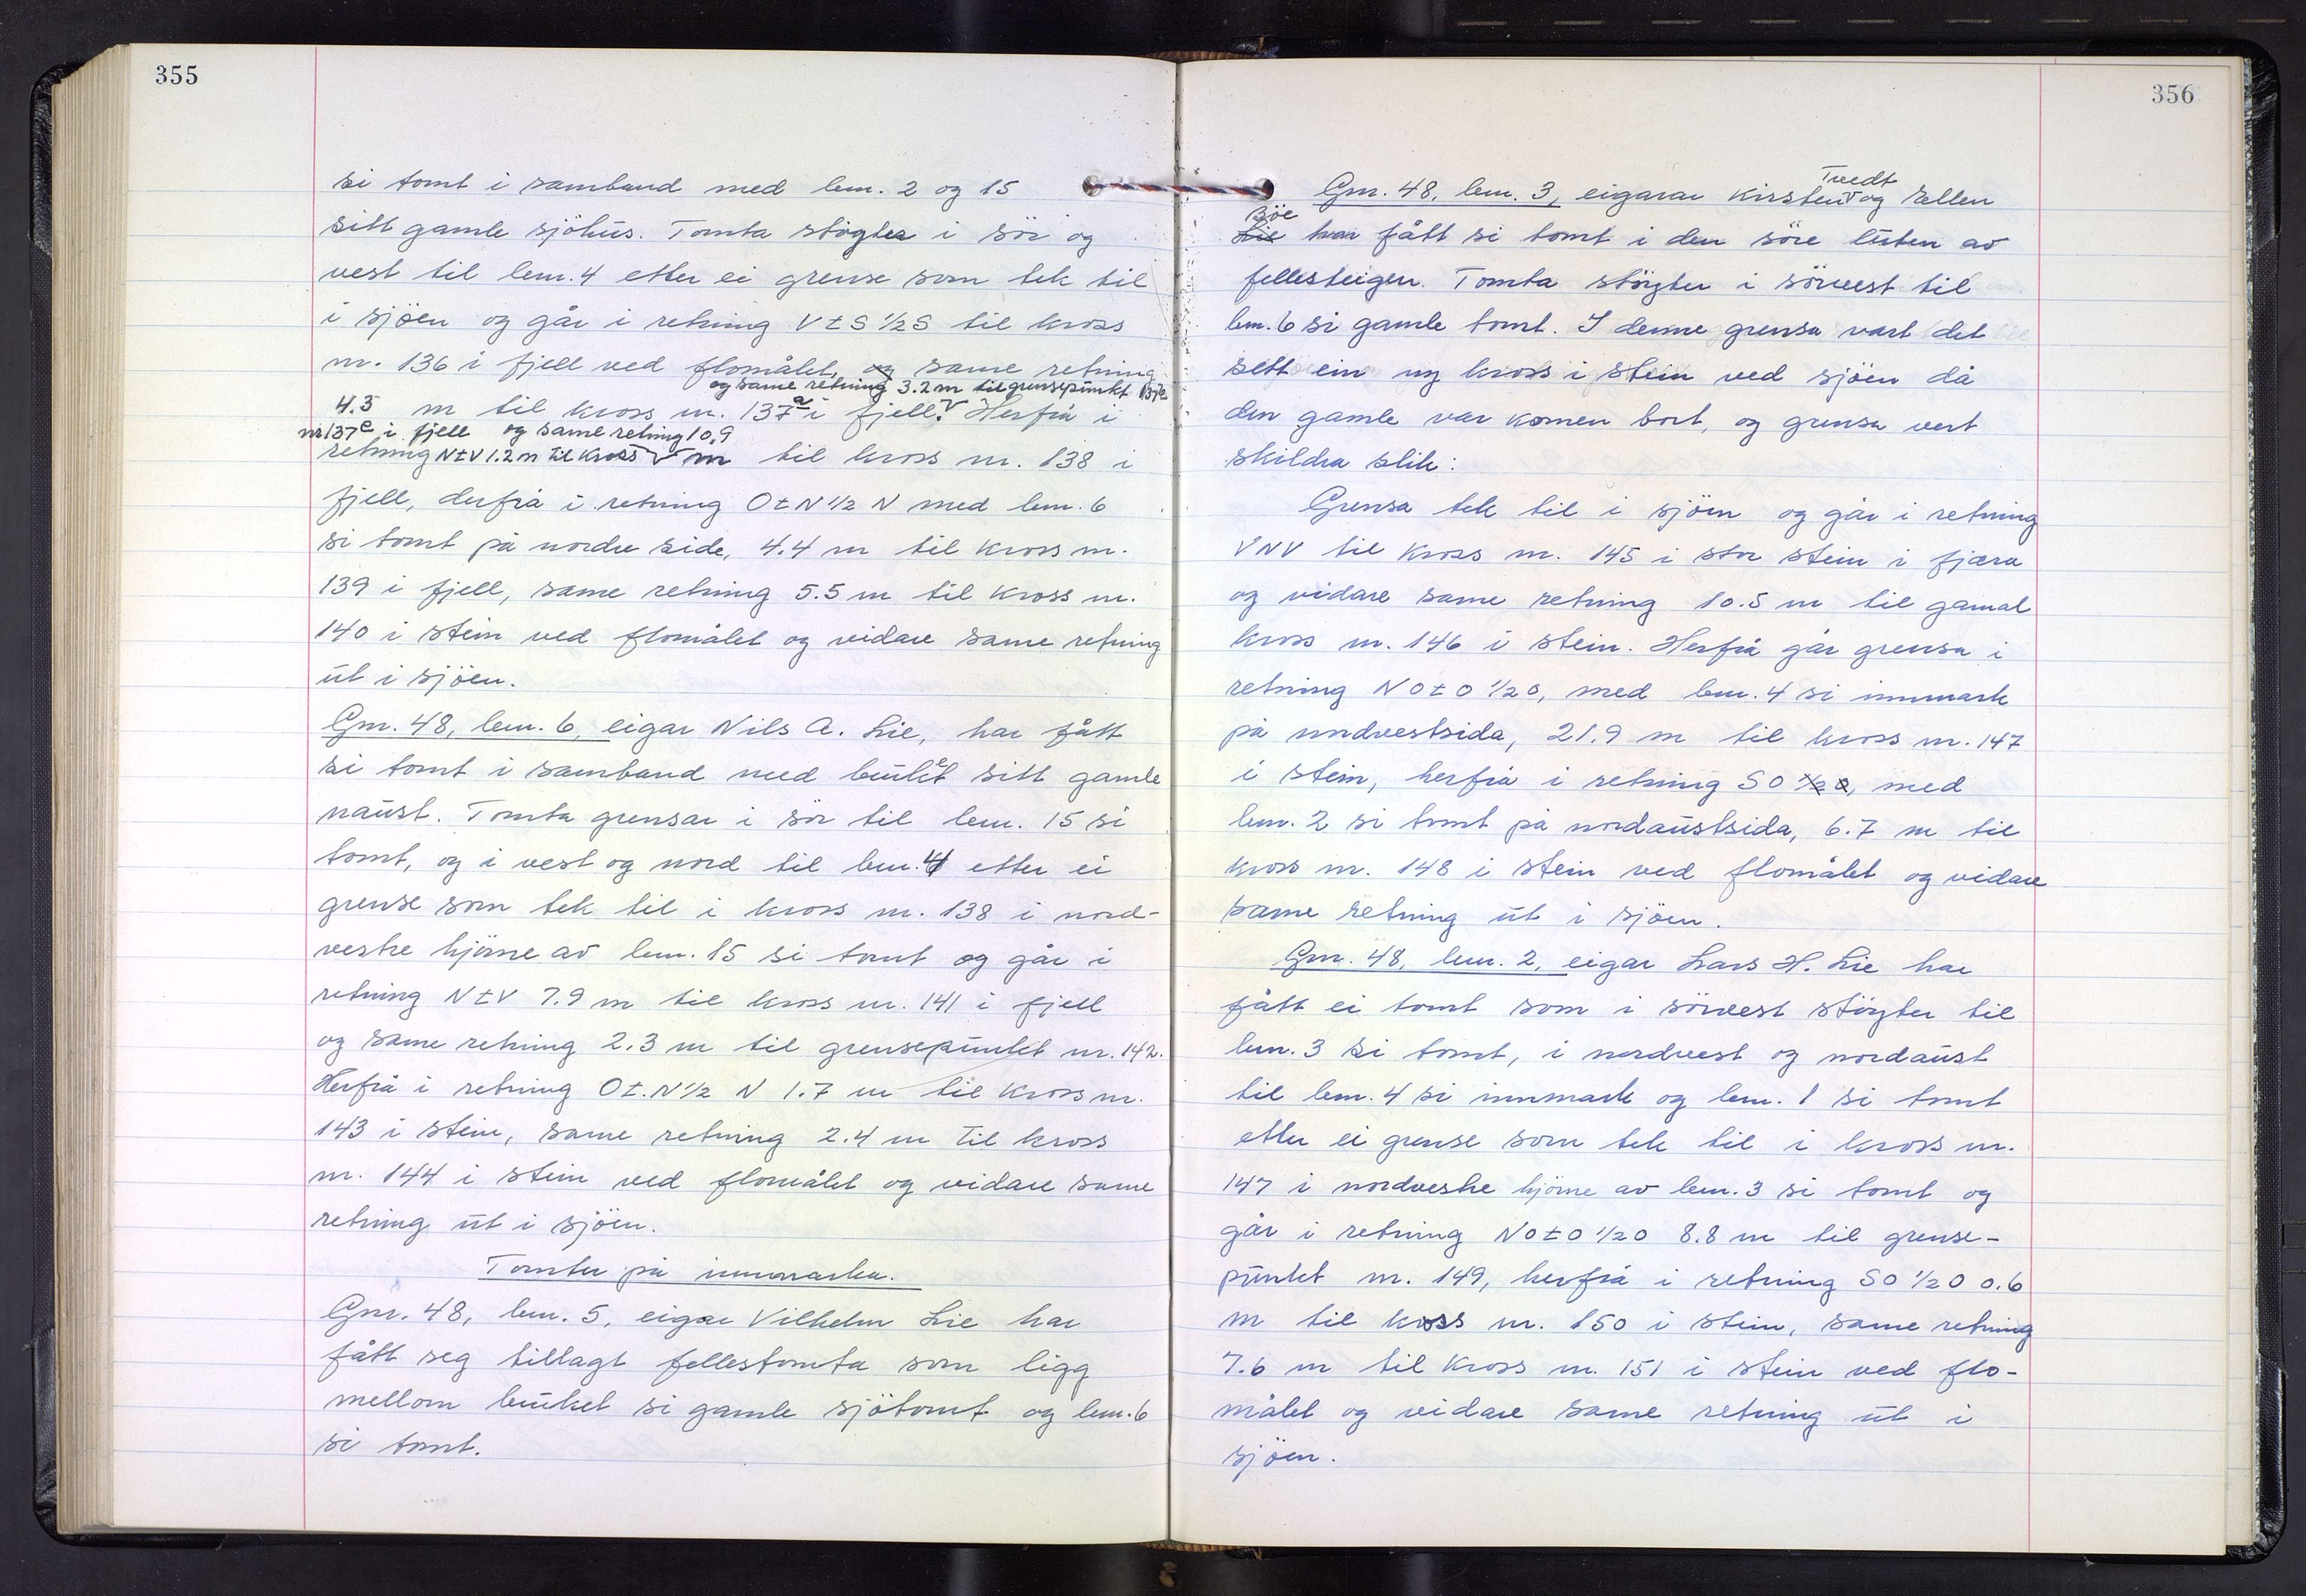 355
si tomt i samband med bnr. 2 og 15
sitt gamle sjöhus. Tomta stöyter i sör og
vest til bnr. 4 etter ei grense som tek til
i sjöen og går i retning V t S ½ S til kross
nr. 136 i fjell ved flomålet, og same retning
og same retning 3.2 m til grensepunkt 137b
4.3 m til kross nr. 137a i fjell. Herfrå i
nr 137c i fjell og same retning 10,9
retning N t V 1.2 m til kross m til kross nr. 138 i
fjell, derfrå i retning O t N ½ N med bnr. 6
si tomt på nordre side, 4.4 m til kross nr.
139 i fjell, same retning 5.5 m til kross nr.
140 i stein ved flomålet og vidare same retning
ut i sjöen.
Gnr. 48, bnr. 6, eigar Nils A. Lie, har fått
si tomt i samband med bruket sitt gamle
naust. Tomta grensar i sör til bnr. 15 si
tomt, og i vest og nord til bnr. 4 etter ei
grense som tek til i kross nr. 138 i nord-
vestre hjörne av bnr. 15 si tomt og går i
retning N t V 7.9 m til kross nr. 141 i fjell
og same retning 2.3 m til grensepunkt nr. 142.
Herfrå i retning O t. N ½ N 1.7 m til kross nr.
143 i stein, same retning 2.4 m til kross
nr. 144 i stein ved flomålet og vidare same
retning ut i sjöen.
Tomter på innmarka.
Gnr. 48, bnr. 5, eigar Vilhelm Lie har
fått seg tillagt fellestomta som ligg
mellom bruket si gamle sjötomt og bnr. 6
si tomt.
356
Tvedt
Gnr. 48, bnr. 3, eigarar Kirsten og Rellen
Böe
Lie har fått si tomt i den söre luten av
fellesteigen. Tomta stöyter i sörvest til
bnr. 6 si gamle tomt. I denne grensa vart det
sett ein ny kross i stein ved sjöen då
den gamle var komen bort, og grensa vert
skildra slik:
Grensa tek til i sjöen og går i retning
VNV til kross nr. 145 i stor stein i fjæra
og vidare same retning 10.5 m til gamal
kross nr. 146 i stein. Herfrå går grensa i
retning NO t O ½ O, med bnr. 4 si innmark
på nordvestsida, 21.9 m til kross nr. 147
i stein, herfrå i retning SO ½ O, med
bnr. 2 si tomt på nordaustsida, 6.7 m til
kross nr. 148 i stein ved flomålet og vidare
same retning ut i sjöen.
Gnr. 48, bnr. 2, eigar Lars H. Lie har
fått ei tomt som i sörvest stöyter til
bnr. 3 si tomt, i nordvest og nordaust
til bnr. 4 si innmark og bnr. 1 si tomt
etter ei grense som tek til i kross nr.
147 i nordvestre hjörne av bnr. 3 si tomt og
går i retning NO t O ½ O 8.8 m til grense-
punkt nr. 149, herfrå i retning SO ½ O 0.6
m til kross nr. 150 i stein, same retning
7.6 m til kross nr. 151 i stein ved flo-
målet og vidare same retning ut i
sjöen.